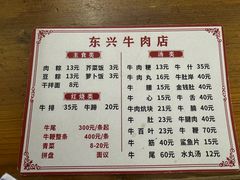 东兴牛肉店
主食类
肉粽 13元 芥菜饭 3元
豆粽 13元 萝卜饭 3元
干拌面 8元
红烧类
牛排 35元 牛蹄 20元
牛尾 300元/条起
牛鞭整条 400元/条
青菜 8-20元
拼盘 面议
汤类
牛肉羹 13元 牛什 35元
牛肉丸 16元 牛肚岸 40元
牛腩 15元 金钱肚 40元
牛心 15元 牛舌 40元
牛肉 15元 牛筋 40元
牛肚 20元 牛腱肉 40元
牛百叶 23元 牛鞭 70元
牛筋 40元 鲨鱼片 15元
牛尾 60元 水丸汤 12元